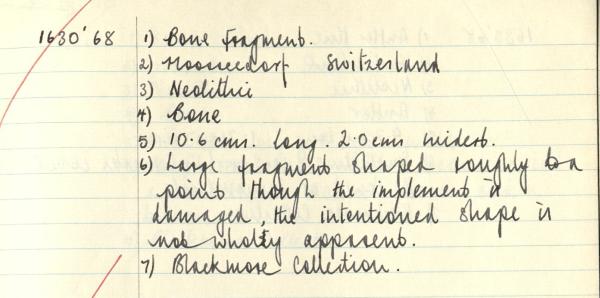 1630'68 1) Bone fragment.
2) Moosseedorf Switzerland
3) Neolithic
4) Bone
5) 10.6 cms. long. 2.0 cms widest.
6) Large fragment shaped roughly to a
point though the implement is
damaged, the intentioned shape is
not wholly apparent.
7) Blackmore Collection.